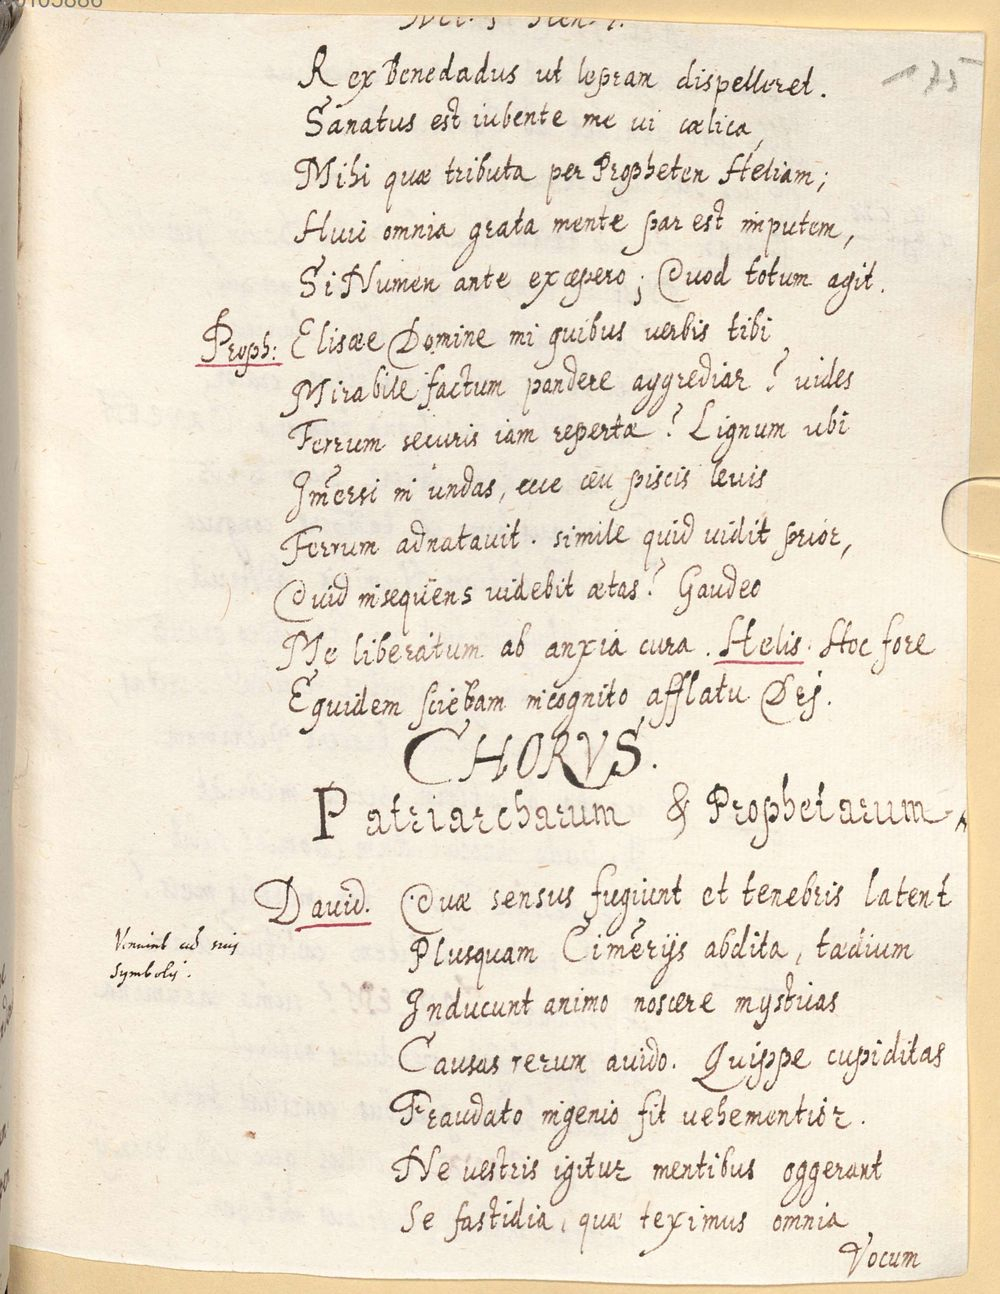 175
Rex Benedadus ut lepram dispelleret.
Sanatus est iubente me ui cælica,
Mihi quæ tributa per Propheten Heliam;
Huic omnia grata mente par est imputem,
Si Numen ante excepero; Quod totum agit.
Proph: Elisæe Domine mi quibus uerbis tibi
Mirabile factum pandere aggrediar? uides
Ferrum securis iam reperta? Lignum ubi
Im̃ersi in undas, ecce ceu piscis leuis
Ferrum adnatauit. simile quid uidit prior,
Quid insequens uidebit ætas? Gaudeo
Me liberatum ab anxia cura. Helis. Hoc fore
Equidem sciebam incognito afflatu Dej.
CHORVS.
Patriarcharum & Prophetarum
David. Quæ sensus fugiunt et tenebris latent
Veniunt cũ suis
symbolis.
Plusquam Cim̃erijs abdita, tædium
Inducunt animo noscere mysticas
Causas rerum auido. Quippe cupiditas
Fraudato ingenio fit uehementior.
Ne uestris igitur mentibus oggerant
Se fastidia, quæ teximus omnia
Vocum